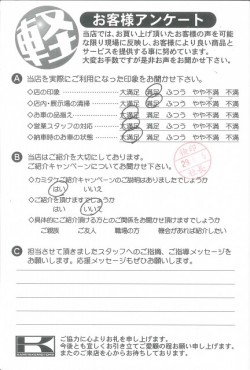 軽
お客様アンケート
当店では、お買い上げ頂いたお客様の声を可能
な限り現場に反映し、お客様により良い商品と
サービスを提供する事に努めています。
大変お手数ですが是非お声をお聞かせ下さい。
A 当店を実際にご利用になった印象をお聞かせ下さい。
◇店の印象 大満足 満足 ふつう やや不満 不満
◇店内・展示場の清掃 大満足 満足 ふつう やや不満 不満
◇お車の品揃え 大満足 満足 ふつう やや不満 不満
◇営業スタッフの対応 大満足 満足 ふつう やや不満 不満
◇納車時のお車の状態 大満足 満足 ふつう やや不満 不満
B 当店はご紹介を大切にしてあります。
ご紹介キャンペーンについてお聞かせ下さい。
◇カミタケご紹介キャンペーンのご説明はありましたでしょうか
はい いいえ
◇ご紹介を頂けますでしょうか
はい いいえ
◇具体的にご紹介頂ける方とのご関係をお聞かせ頂けますでしょうか
ご親族 ご友人 職場の方 機会があれば紹介したい
C 担当させて頂きましたスタッフへのご指摘、ご指導メッセージを
お願いします。応援メッセージもぜひお願いします。
K
ご協力に心よりお礼を申し上げます。
今後とも宜しくお引き立てご愛顧の程お願い申し上げます。
またのご来店を心からお待ちしております。